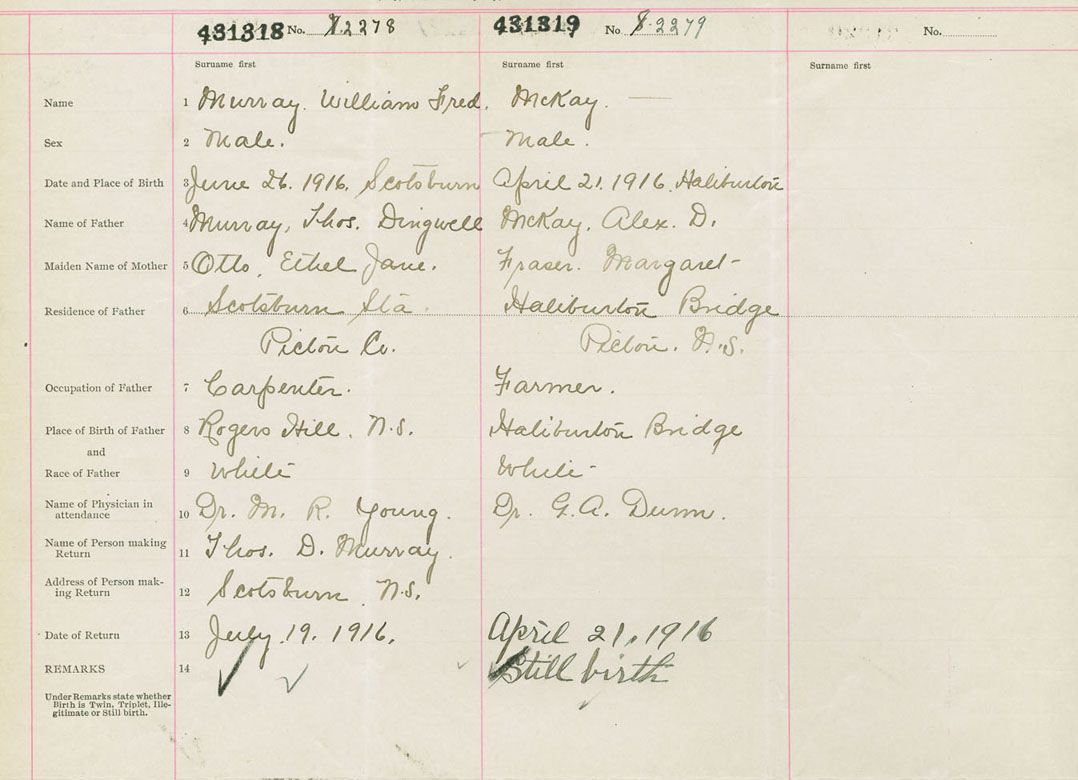 431318 No. 82278 431319 No 8.2279 No.
Surname first Surname first Surname first
Name 1 Murray. William Fred. McKay. —
Sex 2 Male. Male.
Date and Place of Birth 3 June 26. 1916. Scotsburn April 21. 1916. Haliburton
Name of Father 4 Murray, Thos. Dingwell McKay, Alex. D.
Maiden Name of Mother 5 Otto, Ethel Jane. Fraser. Margaret
Residence of Father 6 Scotsburn Sta. Haliburton Bridge
Pictou Co. Pictou. N.S.
Occupation of Father 7 Carpenter. Farmer.
Place of Birth of Father 8 Rogers Hill. N.S. Haliburton Bridge
and
Race of Father 9 White White
Name of Physician in
attendance 10 Dr. M. R. Young. Dr. G. A. Dunn.
Name of Person making
Return 11 Thos. D. Murray.
Address of Person mak-
ing Return 12 Scotsburn N.S.
Date of Return 13 July 19. 1916. April 21, 1916
REMARKS 14 Still birth
Under Remarks state whether
Birth is Twin, Triplet, Ille-
gitimate or Still birth.